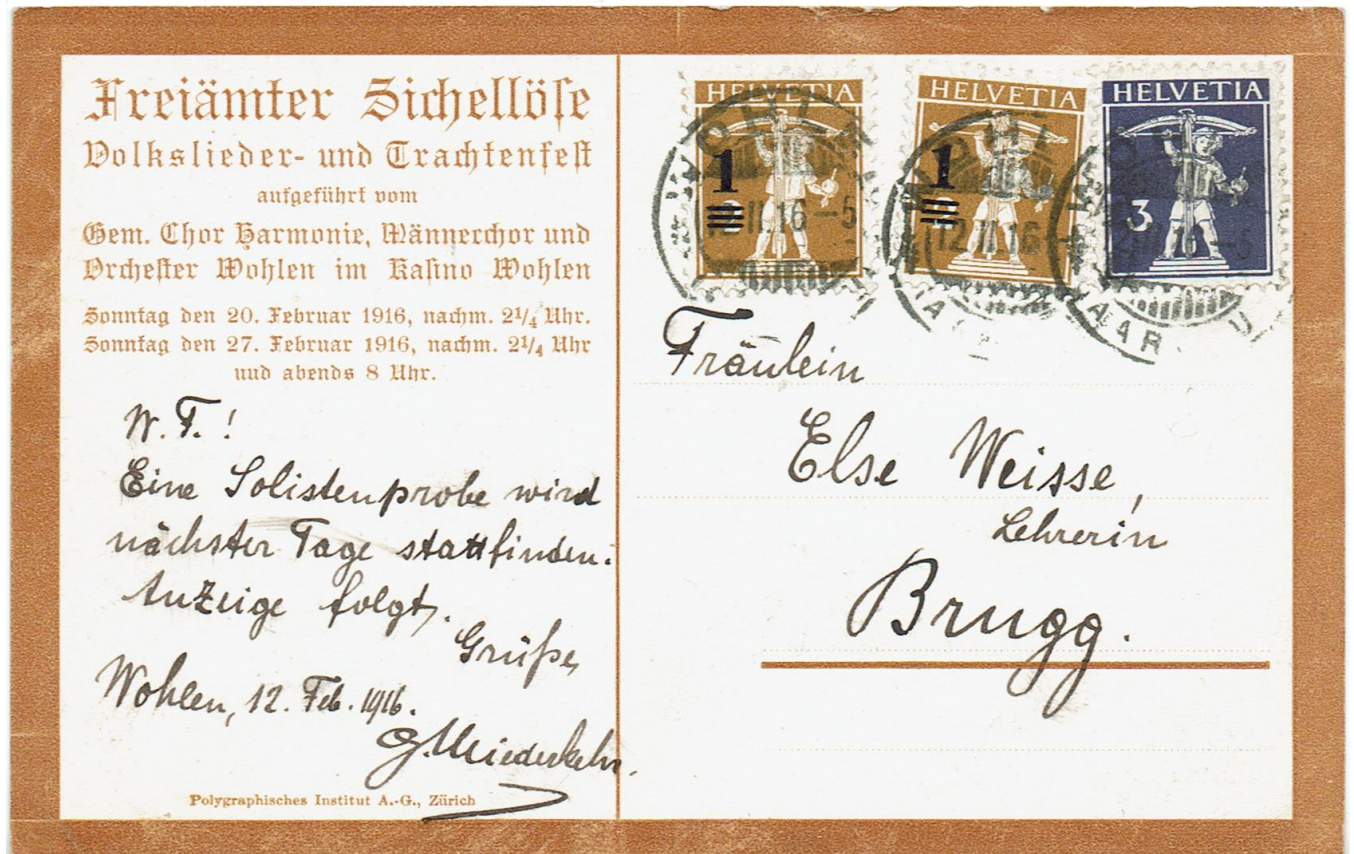 Freiämter Sichellöse
Volkslieder- und Trachtenfest
aufgeführt vom
Gem. Chor Harmonie, Männerchor und
Orchester Wohlen im Kasino Wohlen
Sonntag den 20. Februar 1916, nachm. 2¼ Uhr.
Sonntag den 27. Februar 1916, nachm. 2¼ Uhr
und abends 8 Uhr.
W. F.!
Eine Solistenprobe wird
nächster Tage stattfinden.
Anzeige folgt.
Grüße,
Wohlen, 12. Feb. 1916.
Polygraphisches Institut A.-G., Zürich
HELVETIA
1
HELVETIA
1
HELVETIA
3
12.II.16
Fräulein
Else Weisse,
Lehrerin
Brugg.